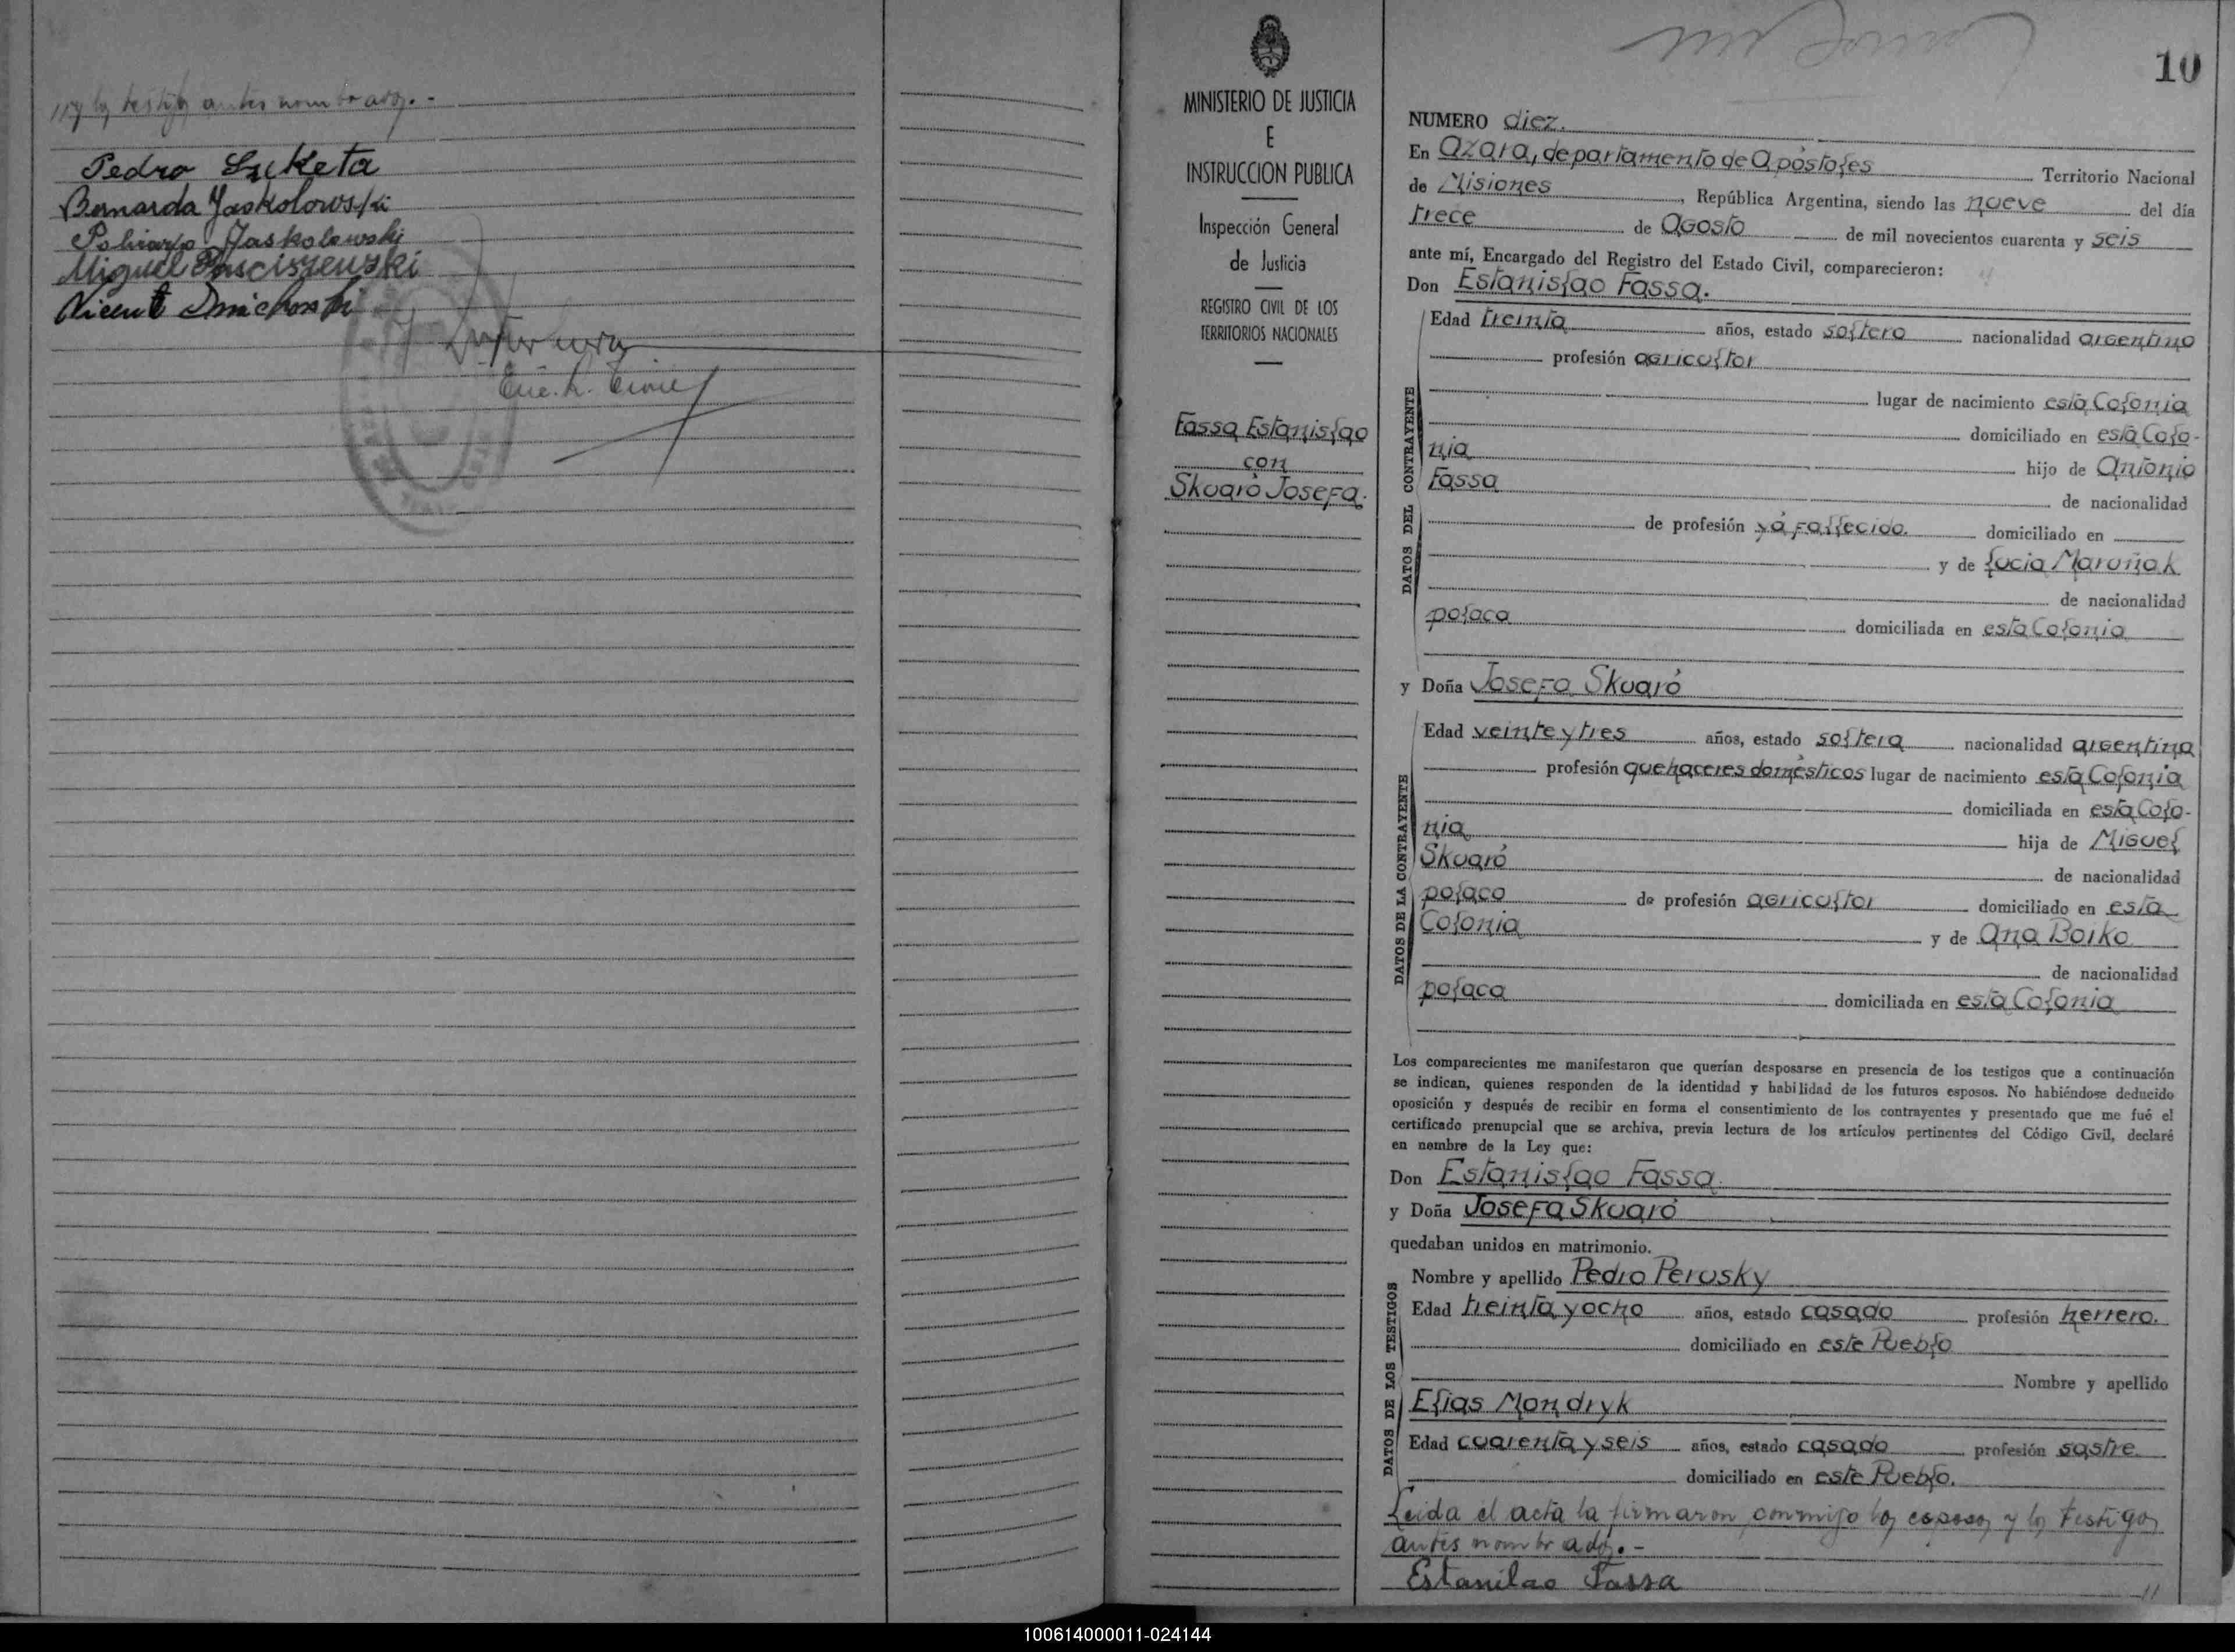 y los testigos antes nombrados.-
Pedro Suketa
Bernarda Jaskolowski
Policarpo Jaskolowski
Miguel
Vicente
Enc. R. Civil
MINISTERIO DE JUSTICIA
E
INSTRUCCION PUBLICA
Inspección General
de Justicia
REGISTRO CIVIL DE LOS
TERRITORIOS NACIONALES
Fassa Estanislao
con
Skuaró Josefa.
10
NUMERO diez.
En Azara, departamento de Apóstoles Territorio Nacional
de Misiones, República Argentina, siendo las nueve del día
trece de Agosto de mil novecientos cuarenta y seis
ante mí, Encargado del Registro del Estado Civil, comparecieron:
Don Estanislao Fassa.
DATOS DEL CONTRAYENTE
Edad treinta años, estado soltero nacionalidad argentino
profesión agricultor
lugar de nacimiento esta Colonia
domiciliado en esta Colo-
nia hijo de Antonio
Fassa de nacionalidad
de profesión yá fallecido. domiciliado en
y de Lucia Maruñak
de nacionalidad
polaca domiciliada en esta Colonia
y Doña Josefa Skuaró
DATOS DE LA CONTRAYENTE
Edad veinte y tres años, estado soltera nacionalidad argentina
profesión quehaceres domésticos lugar de nacimiento esta Colonia
domiciliada en esta Colo-
nia hija de Miguel
Skuaró de nacionalidad
polaco de profesión agricultor domiciliado en esta
Colonia y de Ana Boiko
de nacionalidad
polaca domiciliada en esta Colonia
Los comparecientes me manifestaron que querían desposarse en presencia de los testigos que a continuación
se indican, quienes responden de la identidad y habilidad de los futuros esposos. No habiéndose deducido
oposición y después de recibir en forma el consentimiento de los contrayentes y presentado que me fué el
certificado prenupcial que se archiva, previa lectura de los artículos pertinentes del Código Civil, declaré
en nombre de la Ley que:
Don Estanislao Fassa.
y Doña Josefa Skuaró
quedaban unidos en matrimonio.
DATOS DE LOS TESTIGOS
Nombre y apellido Pedro Perusky
Edad treinta y ocho años, estado casado profesión herrero.
domiciliado en este Pueblo
Nombre y apellido
Elias Mondryk
Edad cuarenta y seis años, estado casado profesión sastre
domiciliado en este Pueblo.
Leida el acta la firmaron conmigo los esposos y los testigos
antes nombrados.-
Estanilao Fassa
100614000011-024144